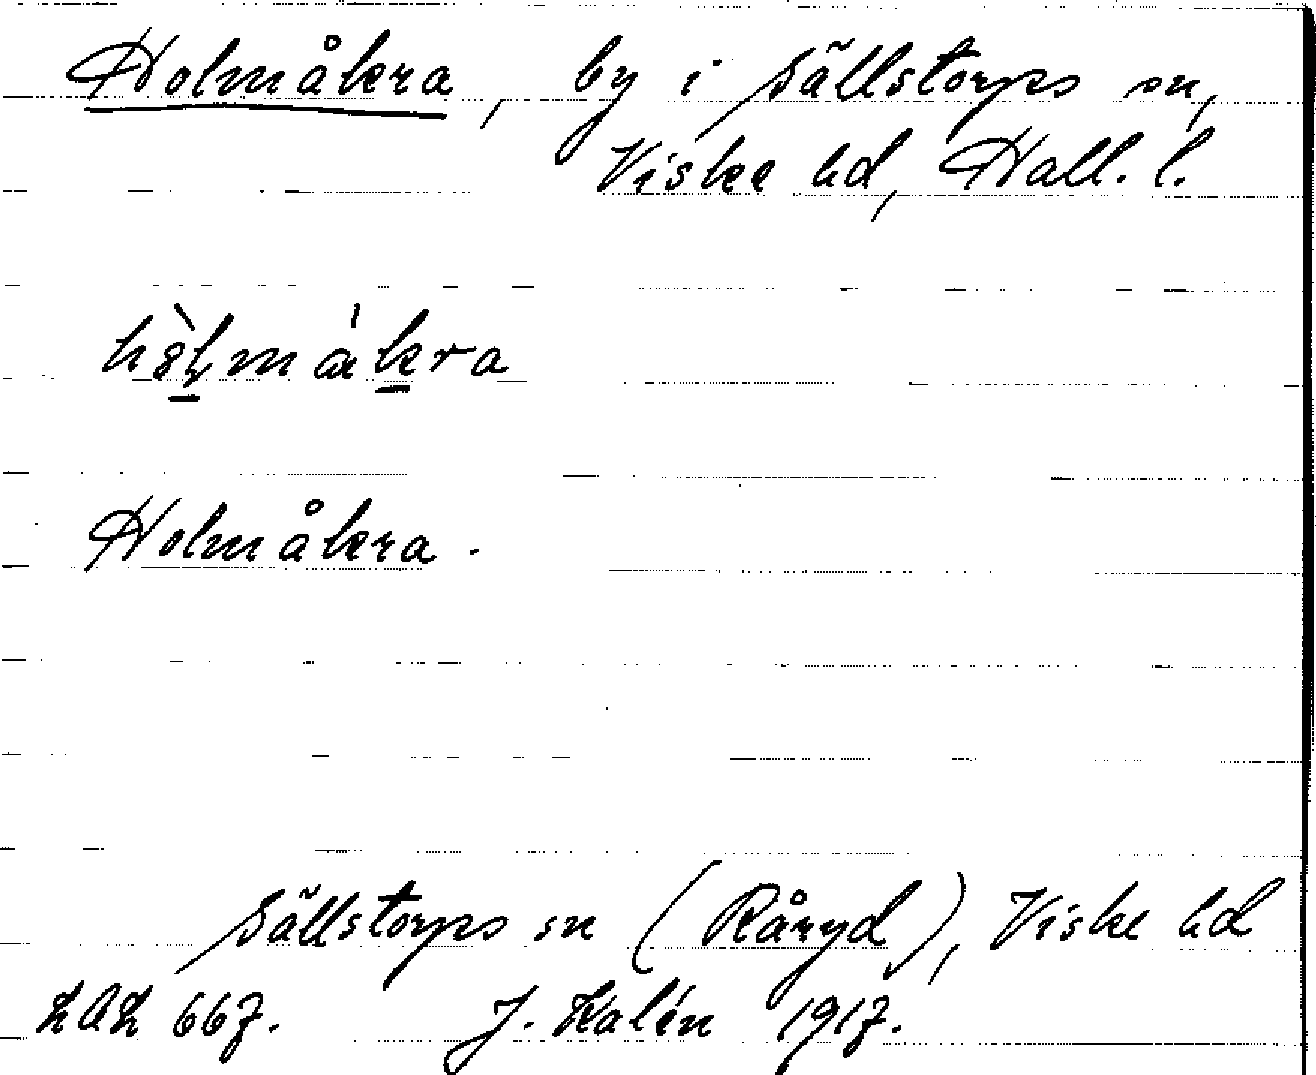 Holmåkra, by i Sällstorps sn,
Viske hd, Hall. l.
Holmåkra.
Sällstorps sn (Råryd), Viske hd
LAL 667. J. Kalén 1917.